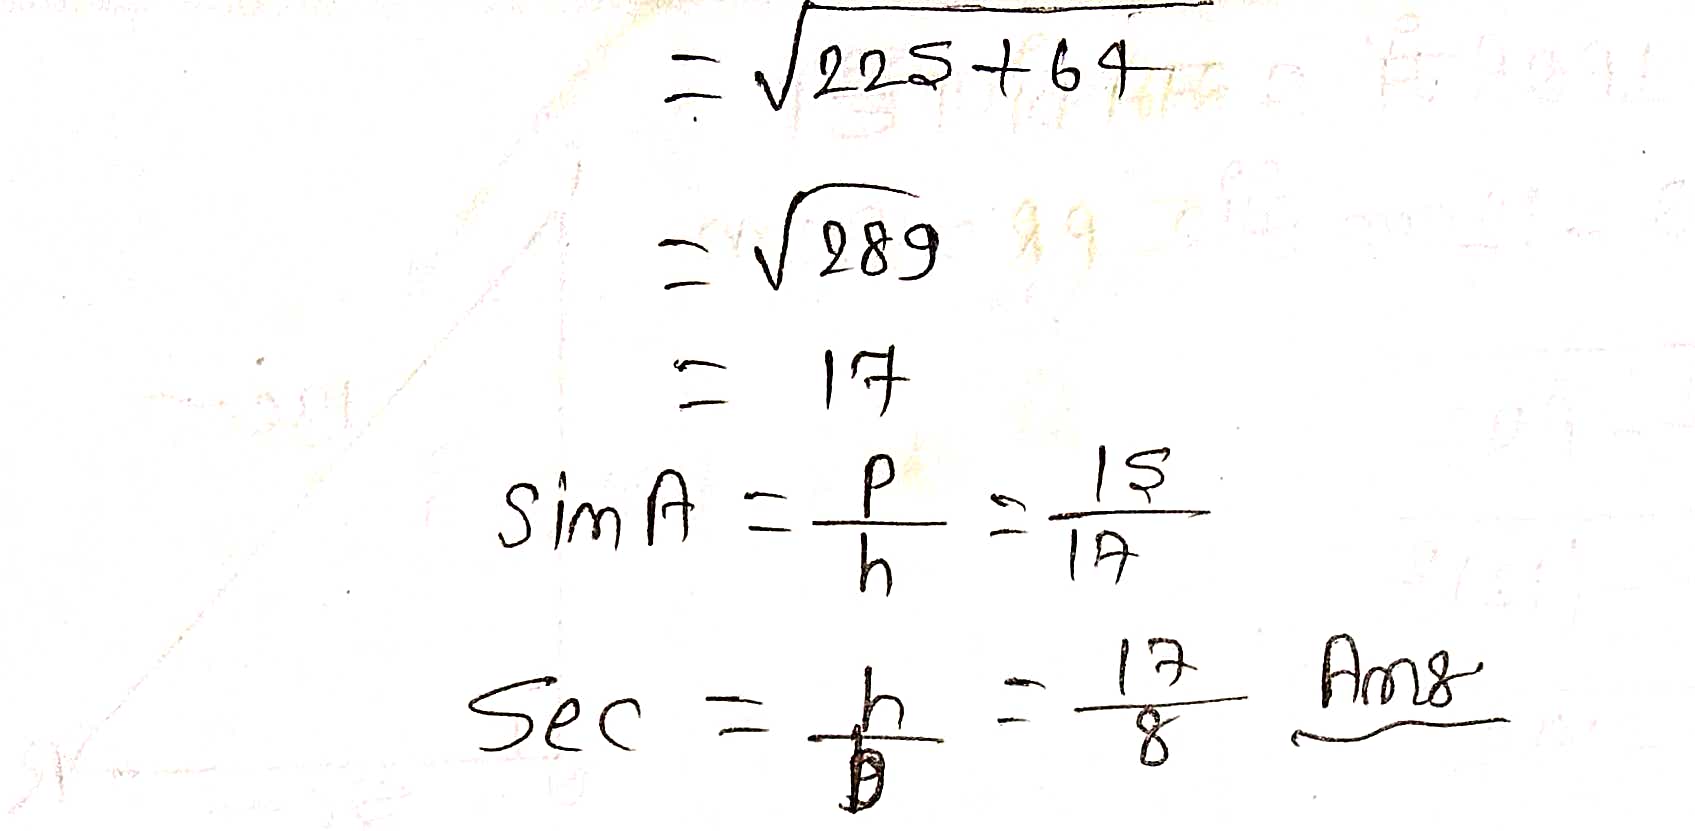 = √225+64
= √289
= 17
Sin A = p/h = 15/17
Sec = h/b = 17/8 Ans